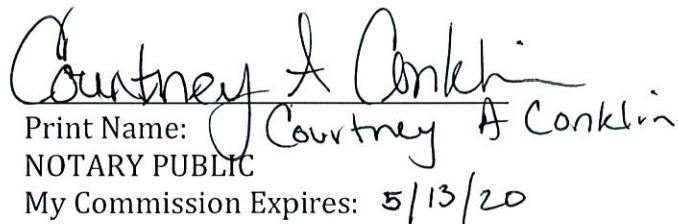 Courtney A Conklin
Print Name: Courtney A Conklin
NOTARY PUBLIC
My Commission Expires: 5/13/20